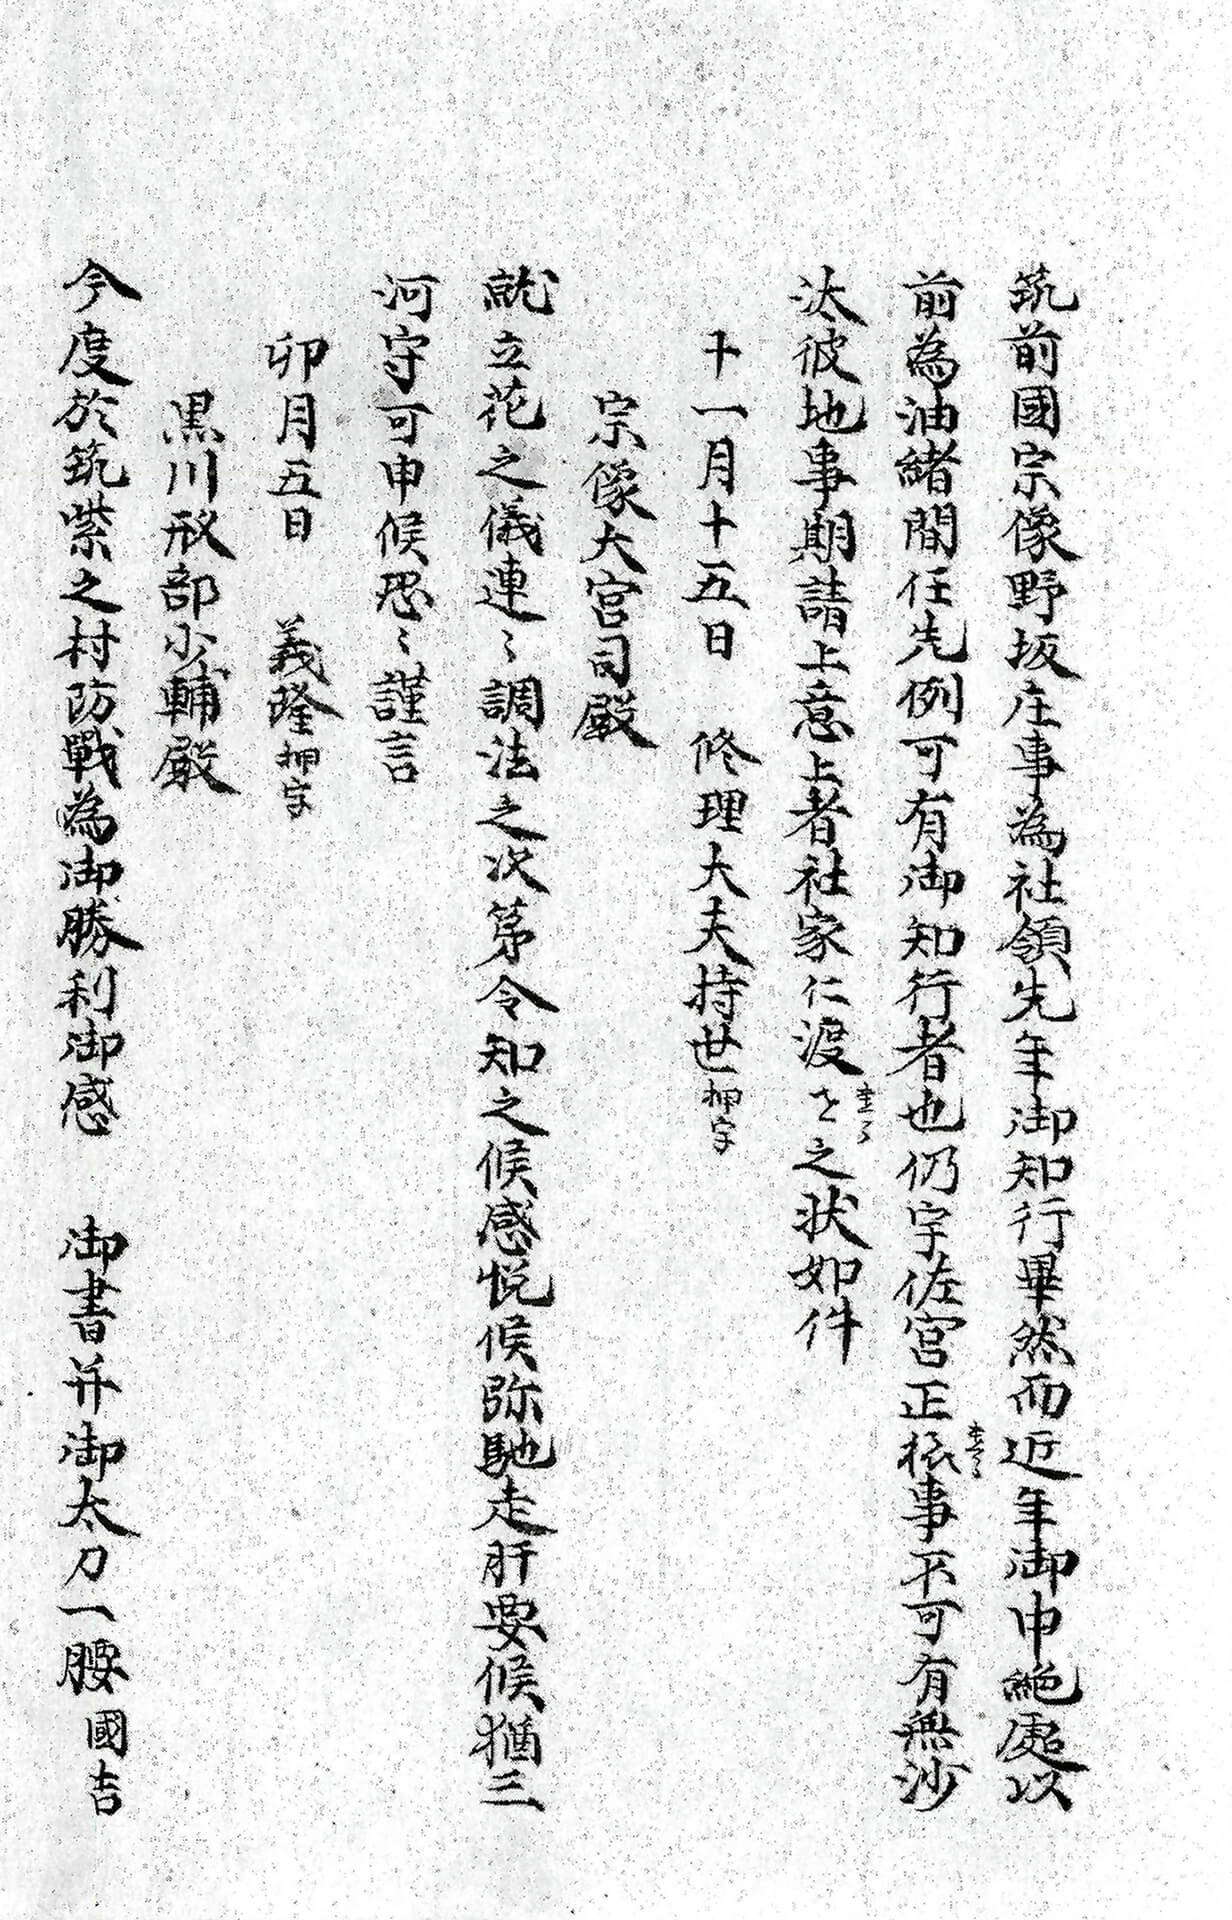 筑前國宗像野坂庄事為社領先年御知行畢然而近年御中絶處以
前為油緒間任先例可有御知行者也仍宇佐宮正枨事不可有無沙
汰彼地事期請上意上者社家仁渡之状如件
十一月十五日　修理大夫持世押字
宗像大宮司殿
就立花之儀連〻調法之次第令知之候感悦候弥馳走肝要候猶三
河守可申候恐〻謹言
卯月五日　義隆押字
黒川刑部少輔殿
今度於筑紫之村防戰為御勝利御感　御書并御太刀一腰國吉